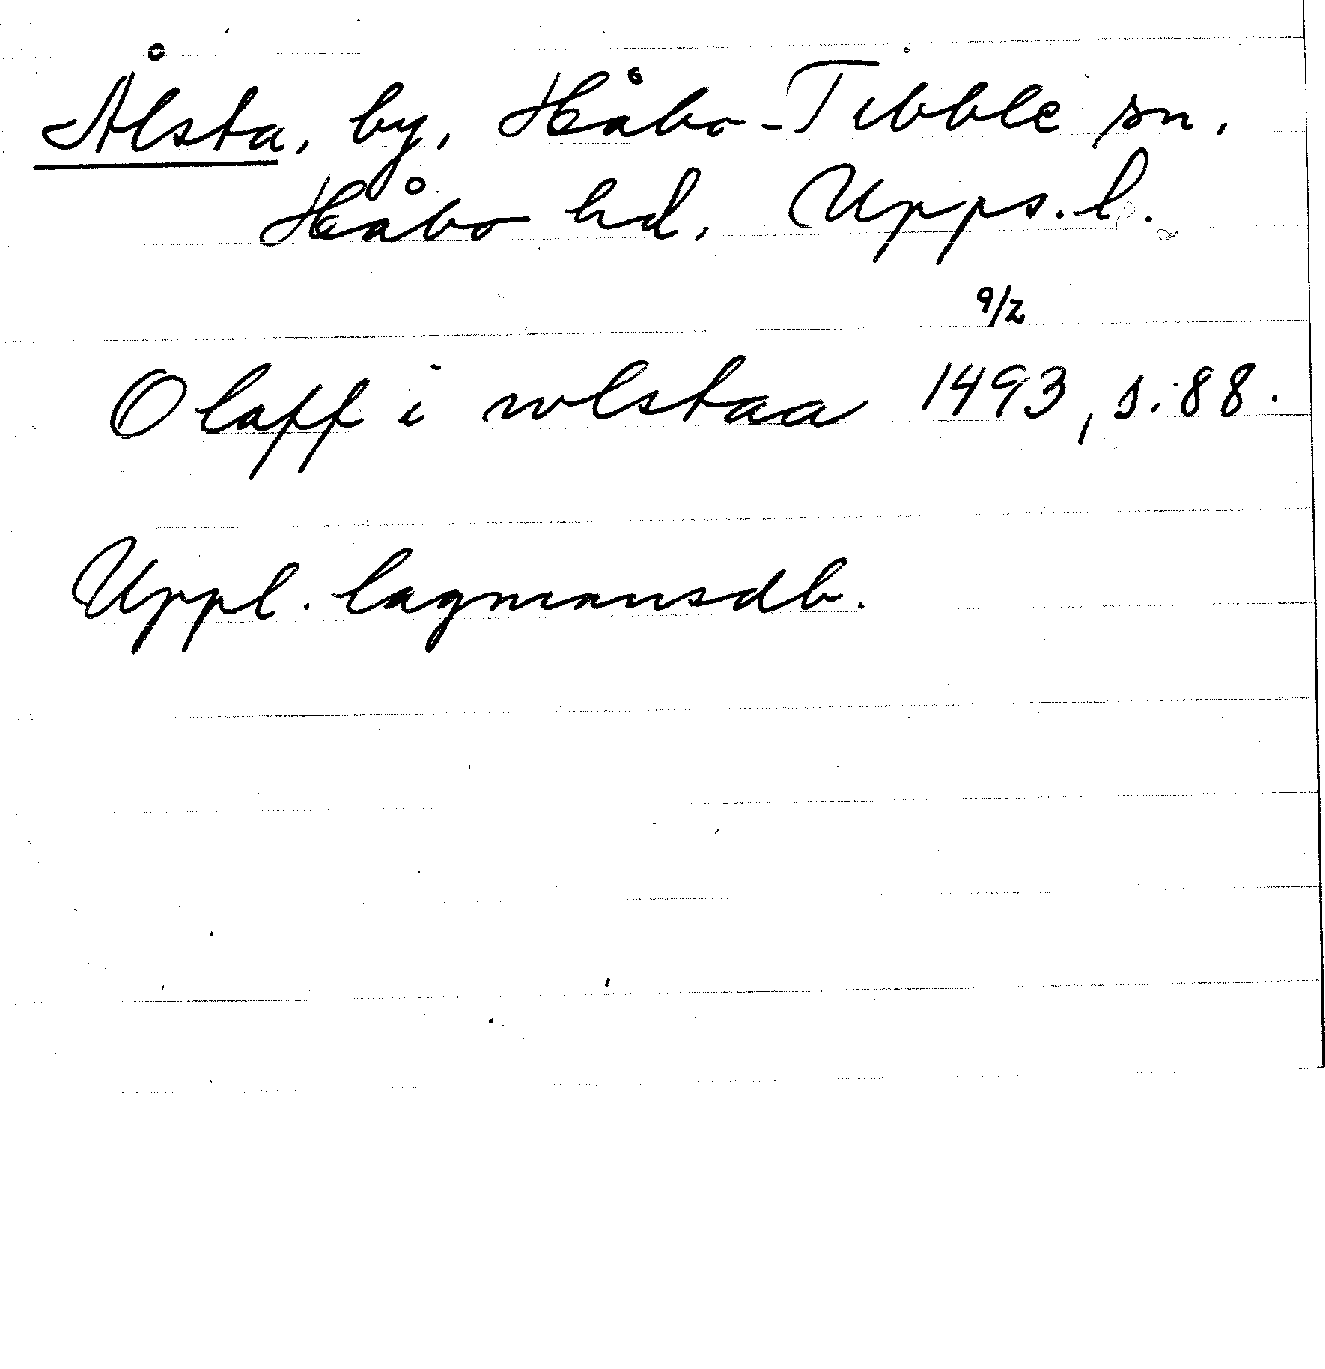 Ålsta, by, Håbo-Tibble sn,
Håbo hd, Upps. l.
9/2
Olaff i wlstaa 1493, s. 88.
Uppl. lagmansdb.